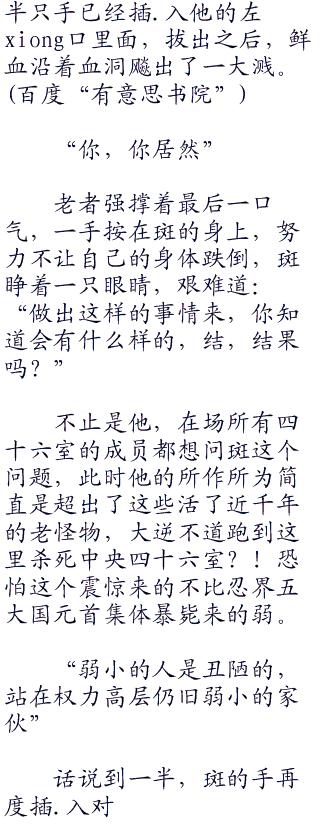 半只手已经插.入他的左
xiong口里面，拔出之后，鲜
血沿着血洞飚出了一大溅。
(百度“有意思书院”)
“你，你居然”
老者强撑着最后一口
气，一手按在斑的身上，努
力不让自己的身体跌倒，斑
睁着一只眼睛，艰难道：
“做出这样的事情来，你知
道会有什么样的，结，结果
吗？”
不止是他，在场所有四
十六室的成员都想问斑这个
问题，此时他的所作所为简
直是超出了这些活了近千年
的老怪物，大逆不道跑到这
里杀死中央四十六室？！恐
怕这个震惊来的不比忍界五
大国元首集体暴毙来的弱。
“弱小的人是丑陋的，
站在权力高层仍旧弱小的家
伙”
话说到一半，斑的手再
度插.入对